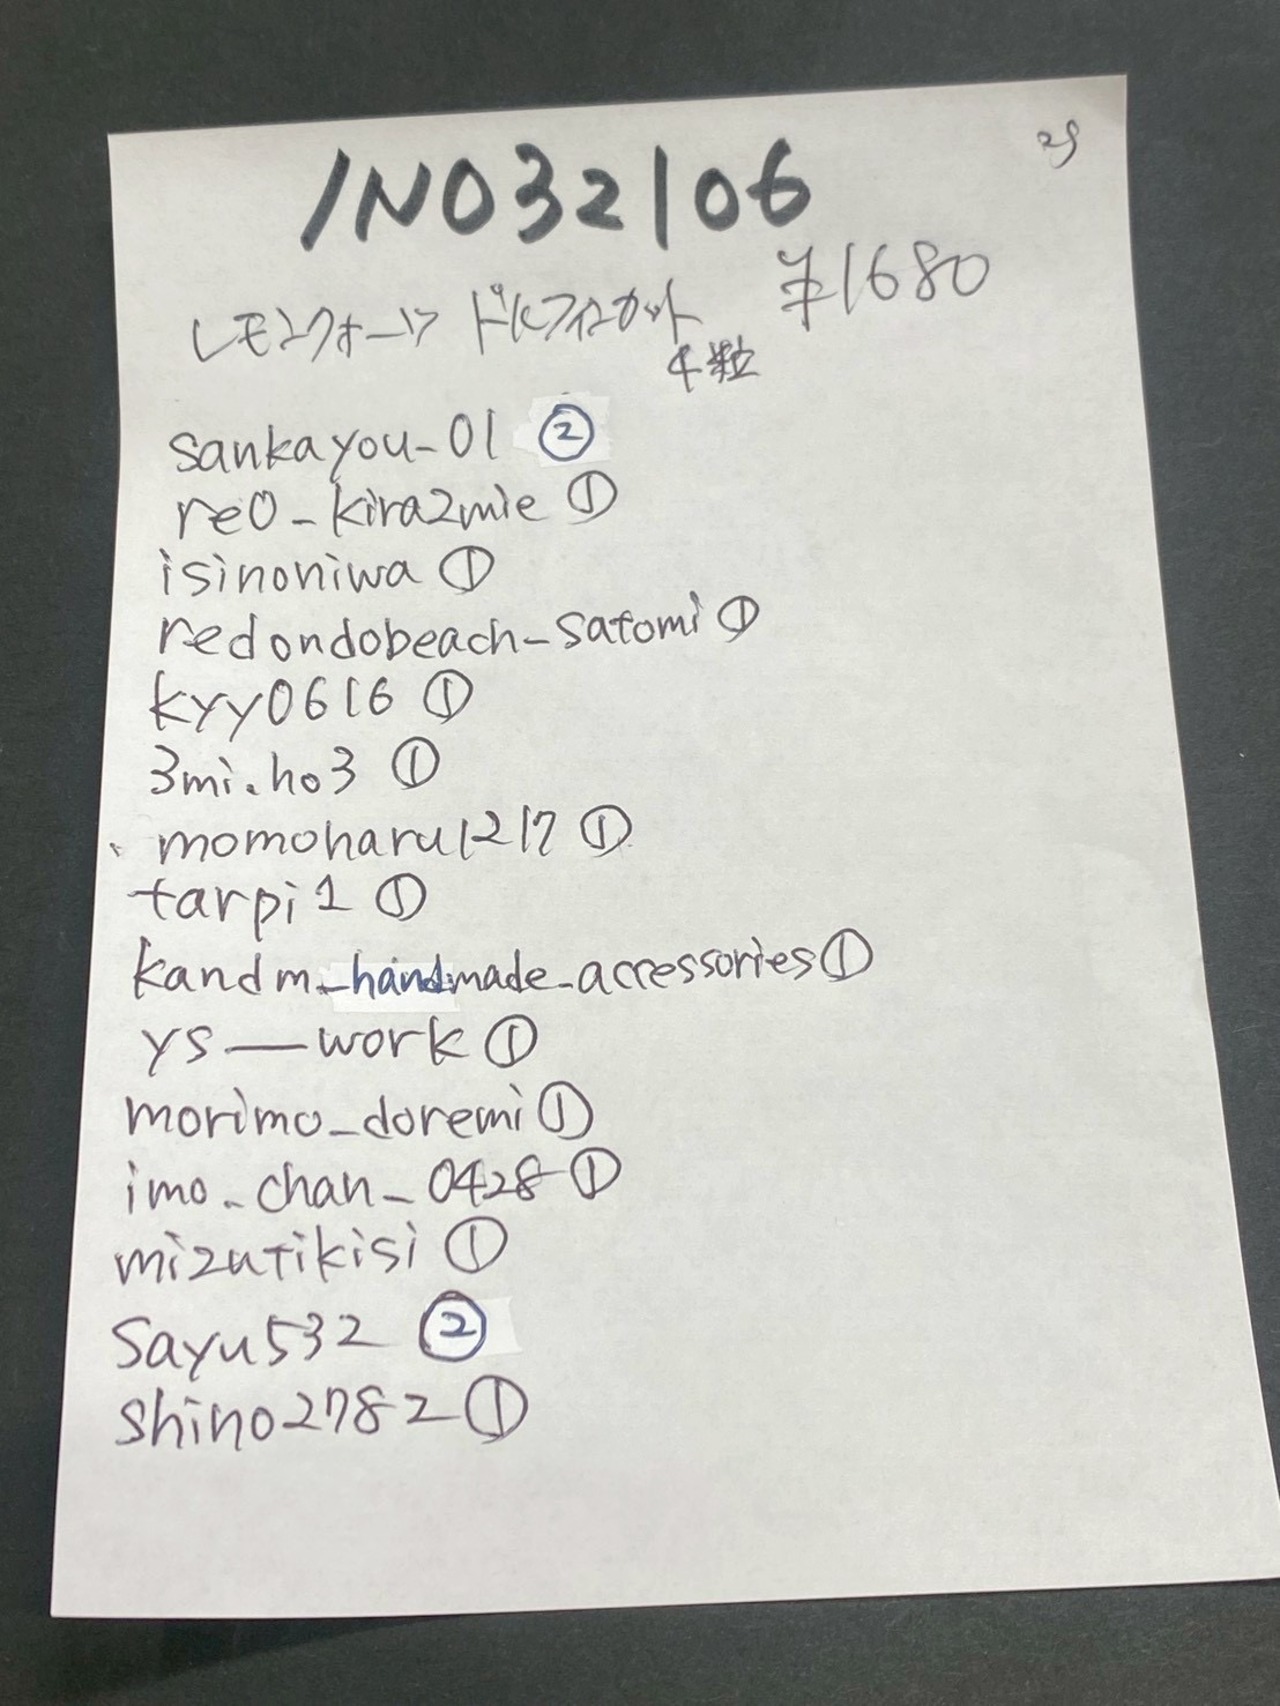 25
INO32106
¥1680
レモンクォーツ ドルフィンカット
4粒
sankayou-01 ②
re0-kira2mie ①
isinoniwa ①
redondobeach-satomi ①
kyy0616 ①
3mi.ho3 ①
momoharu1217 ①
tarpi1 ①
kandm_handmade_accessories ①
ys—work ①
morimo_doremi ①
imo_chan_0428 ①
mizutikisi ①
Sayu532 ②
shino2782 ①